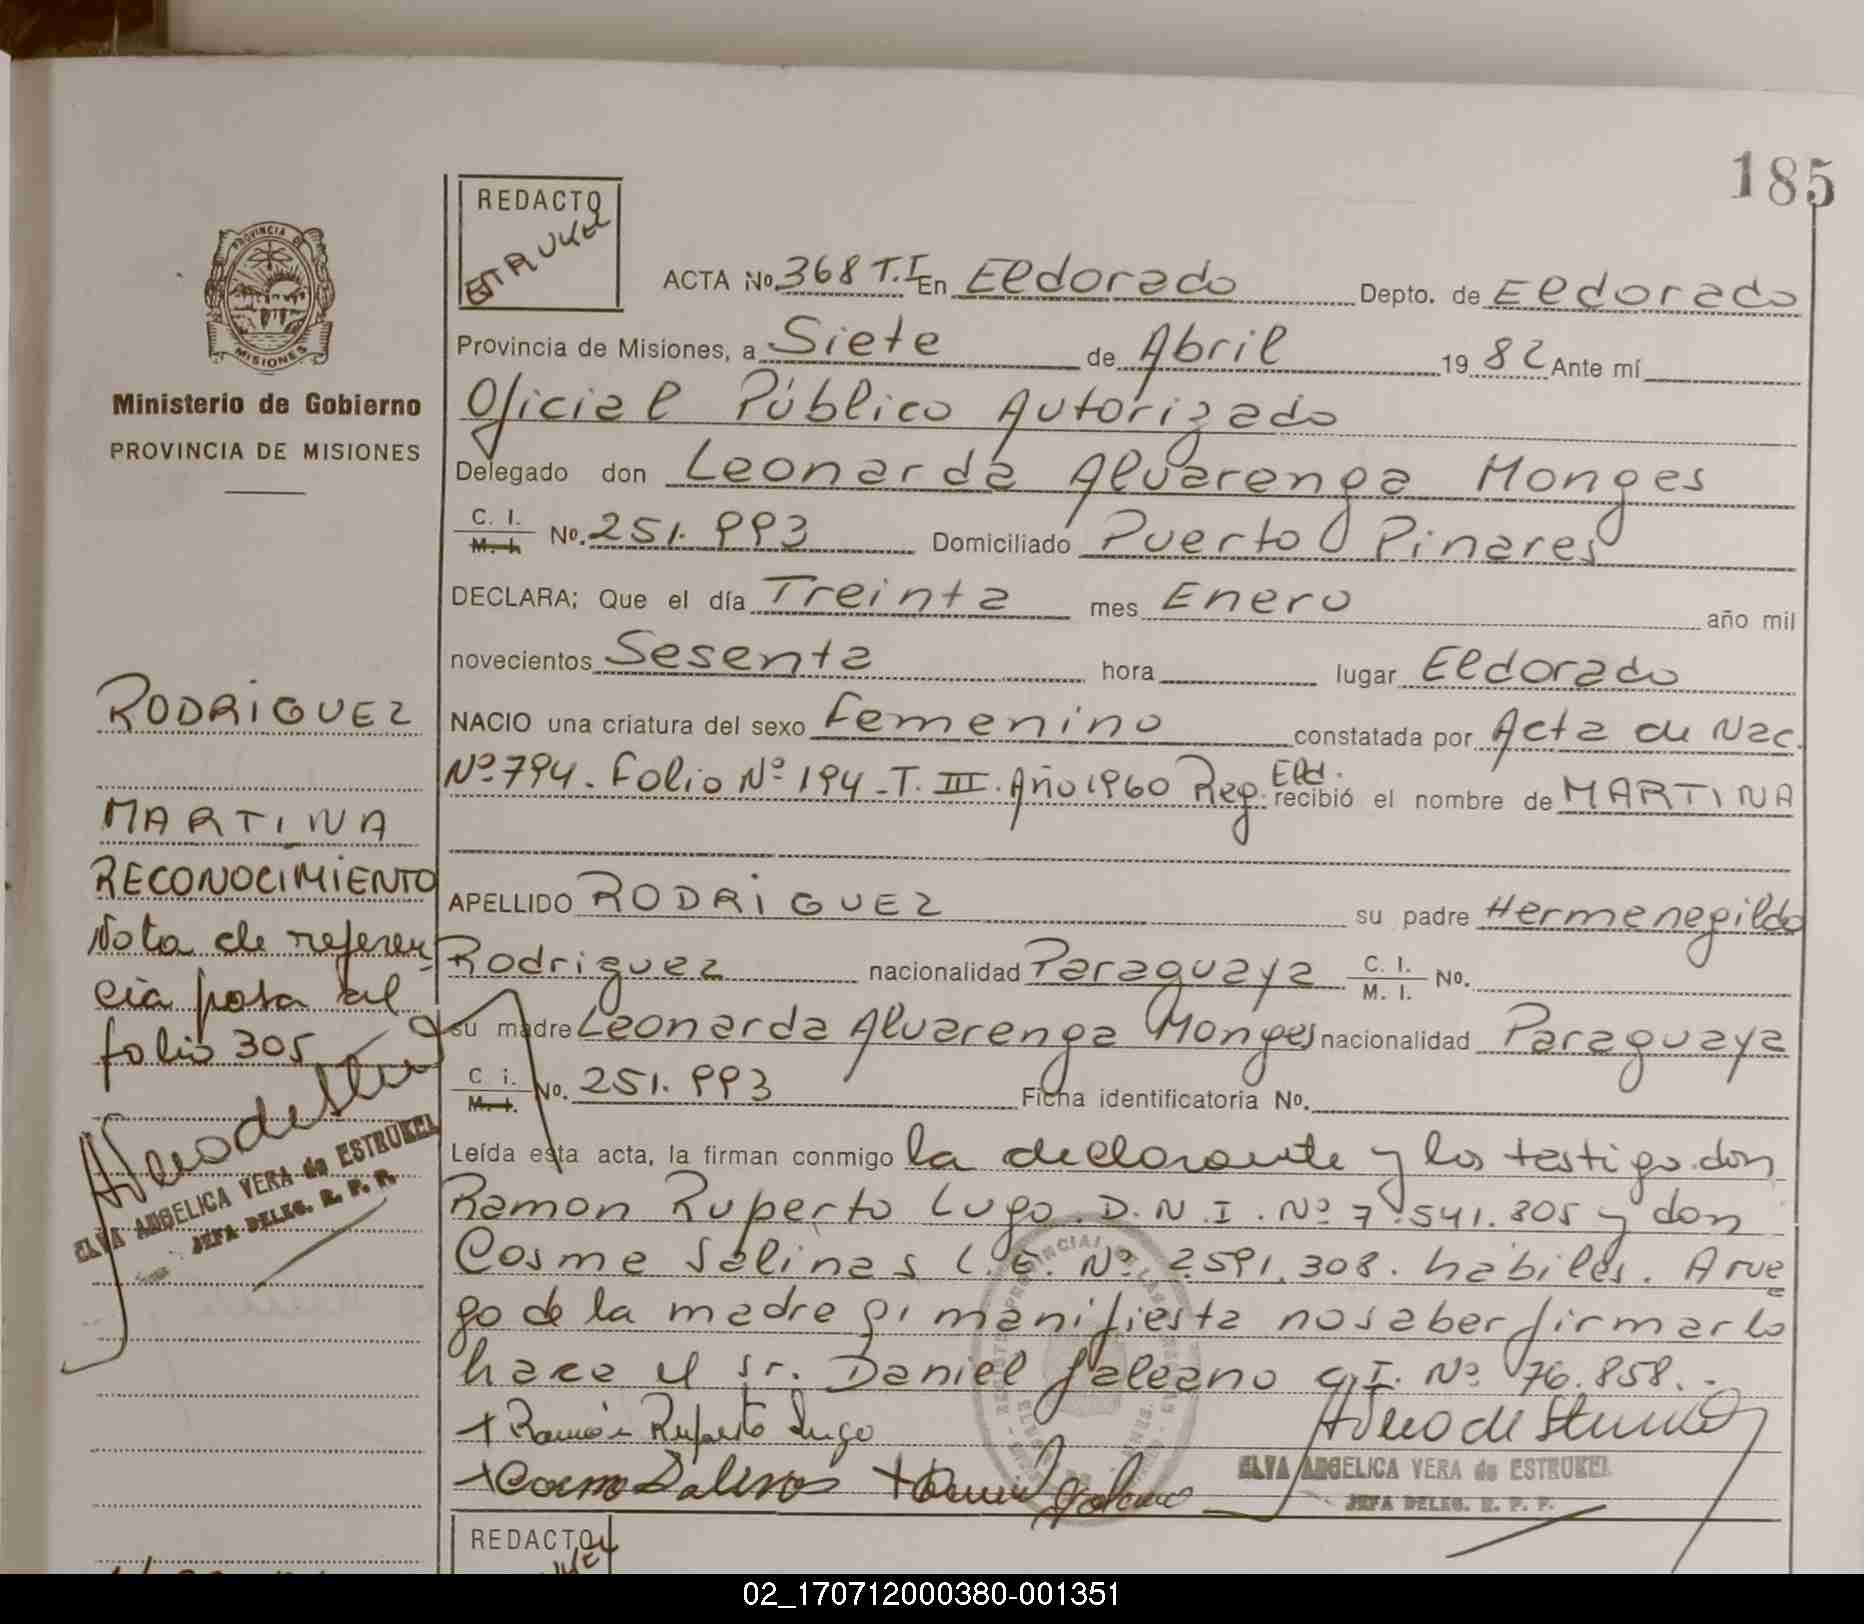 185
REDACTO
ESTRUKEL
PROVINCIA DE
MISIONES
Ministerio de Gobierno
PROVINCIA DE MISIONES
ACTA No. 368 T.I En Eldorado Depto. de Eldorado
Provincia de Misiones, a Siete de Abril 19 82 Ante mí
Oficial Público Autorizado
Delegado don Leonarda Alvarenga Monges
C. I. M. I. No. 251.993 Domiciliado Puerto Pinares
DECLARA; Que el día Treinta mes Enero año mil
novecientos Sesenta hora lugar Eldorado
NACIO una criatura del sexo Femenino constatada por Acta de Nac.
Nº 794. Folio Nº 194 - T. III. Año 1960 Reg. Eld. recibió el nombre de MARTINA
APELLIDO RODRIGUEZ su padre Hermenegildo
Rodriguez nacionalidad Paraguaya C. I. M. I. No.
su madre Leonarda Alvarenga Monges nacionalidad Paraguaya
C. i. M. I. No. 251.993 Ficha identificatoria No.
Leída esta acta, la firman conmigo la declarante y los testigo don
Ramon Ruperto Lugo. D.N.I. Nº 7.541.305 y don
Cosme Salinas L.E. Nº 2.591.308. habiles. A rue
go de la madre qi manifiesta no saber firmar lo
hace el sr. Daniel Galeano C.I. Nº 76.858.-
+ Ramón Ruperto Lugo
+ Cosme Salinas + Daniel Galeano
ELVA ANGELICA VERA de ESTRUKEL
JEFA DELEG. R. P. P.
RODRIGUEZ
MARTINA
RECONOCIMIENTO
Nota de referen
cia pasa al
folio 305
ELVA ANGELICA VERA de ESTRUKEL
JEFA DELEG. R. P. P.
REDACTO
02_170712000380-001351